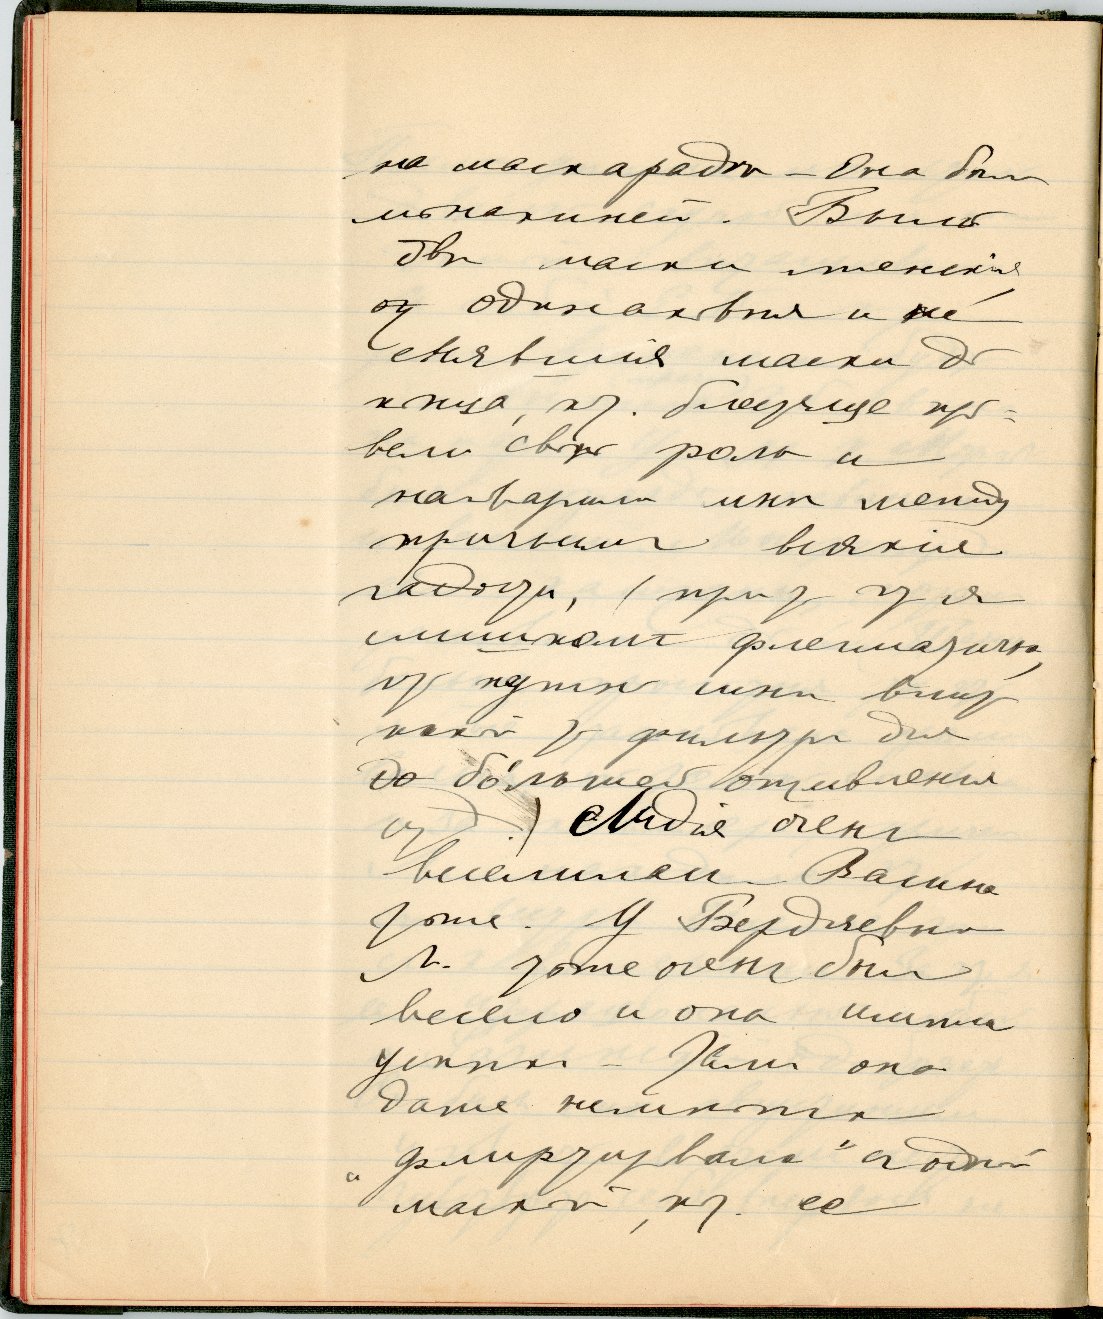 на маскарадѣ – Она была
монахиней. Было
двѣ маски женскія,
од. одинаковыя и не
снявшія маски до
конца, кот. блестяще про=
вели свою роль и
наговорили мнѣ между
прочимъ всякія
гадости, (
слишкомъ флегматична,
нужно мнѣ
какой то для
до большей оживленія
) Лидія очень
веселилась – Васина
тоже. У Бердяевыхъ
Л. тоже очень было
весело и она имѣла
успѣхъ – Тамъ она
даже немножко
„флиртировала" съ одной
маской, кот. ее